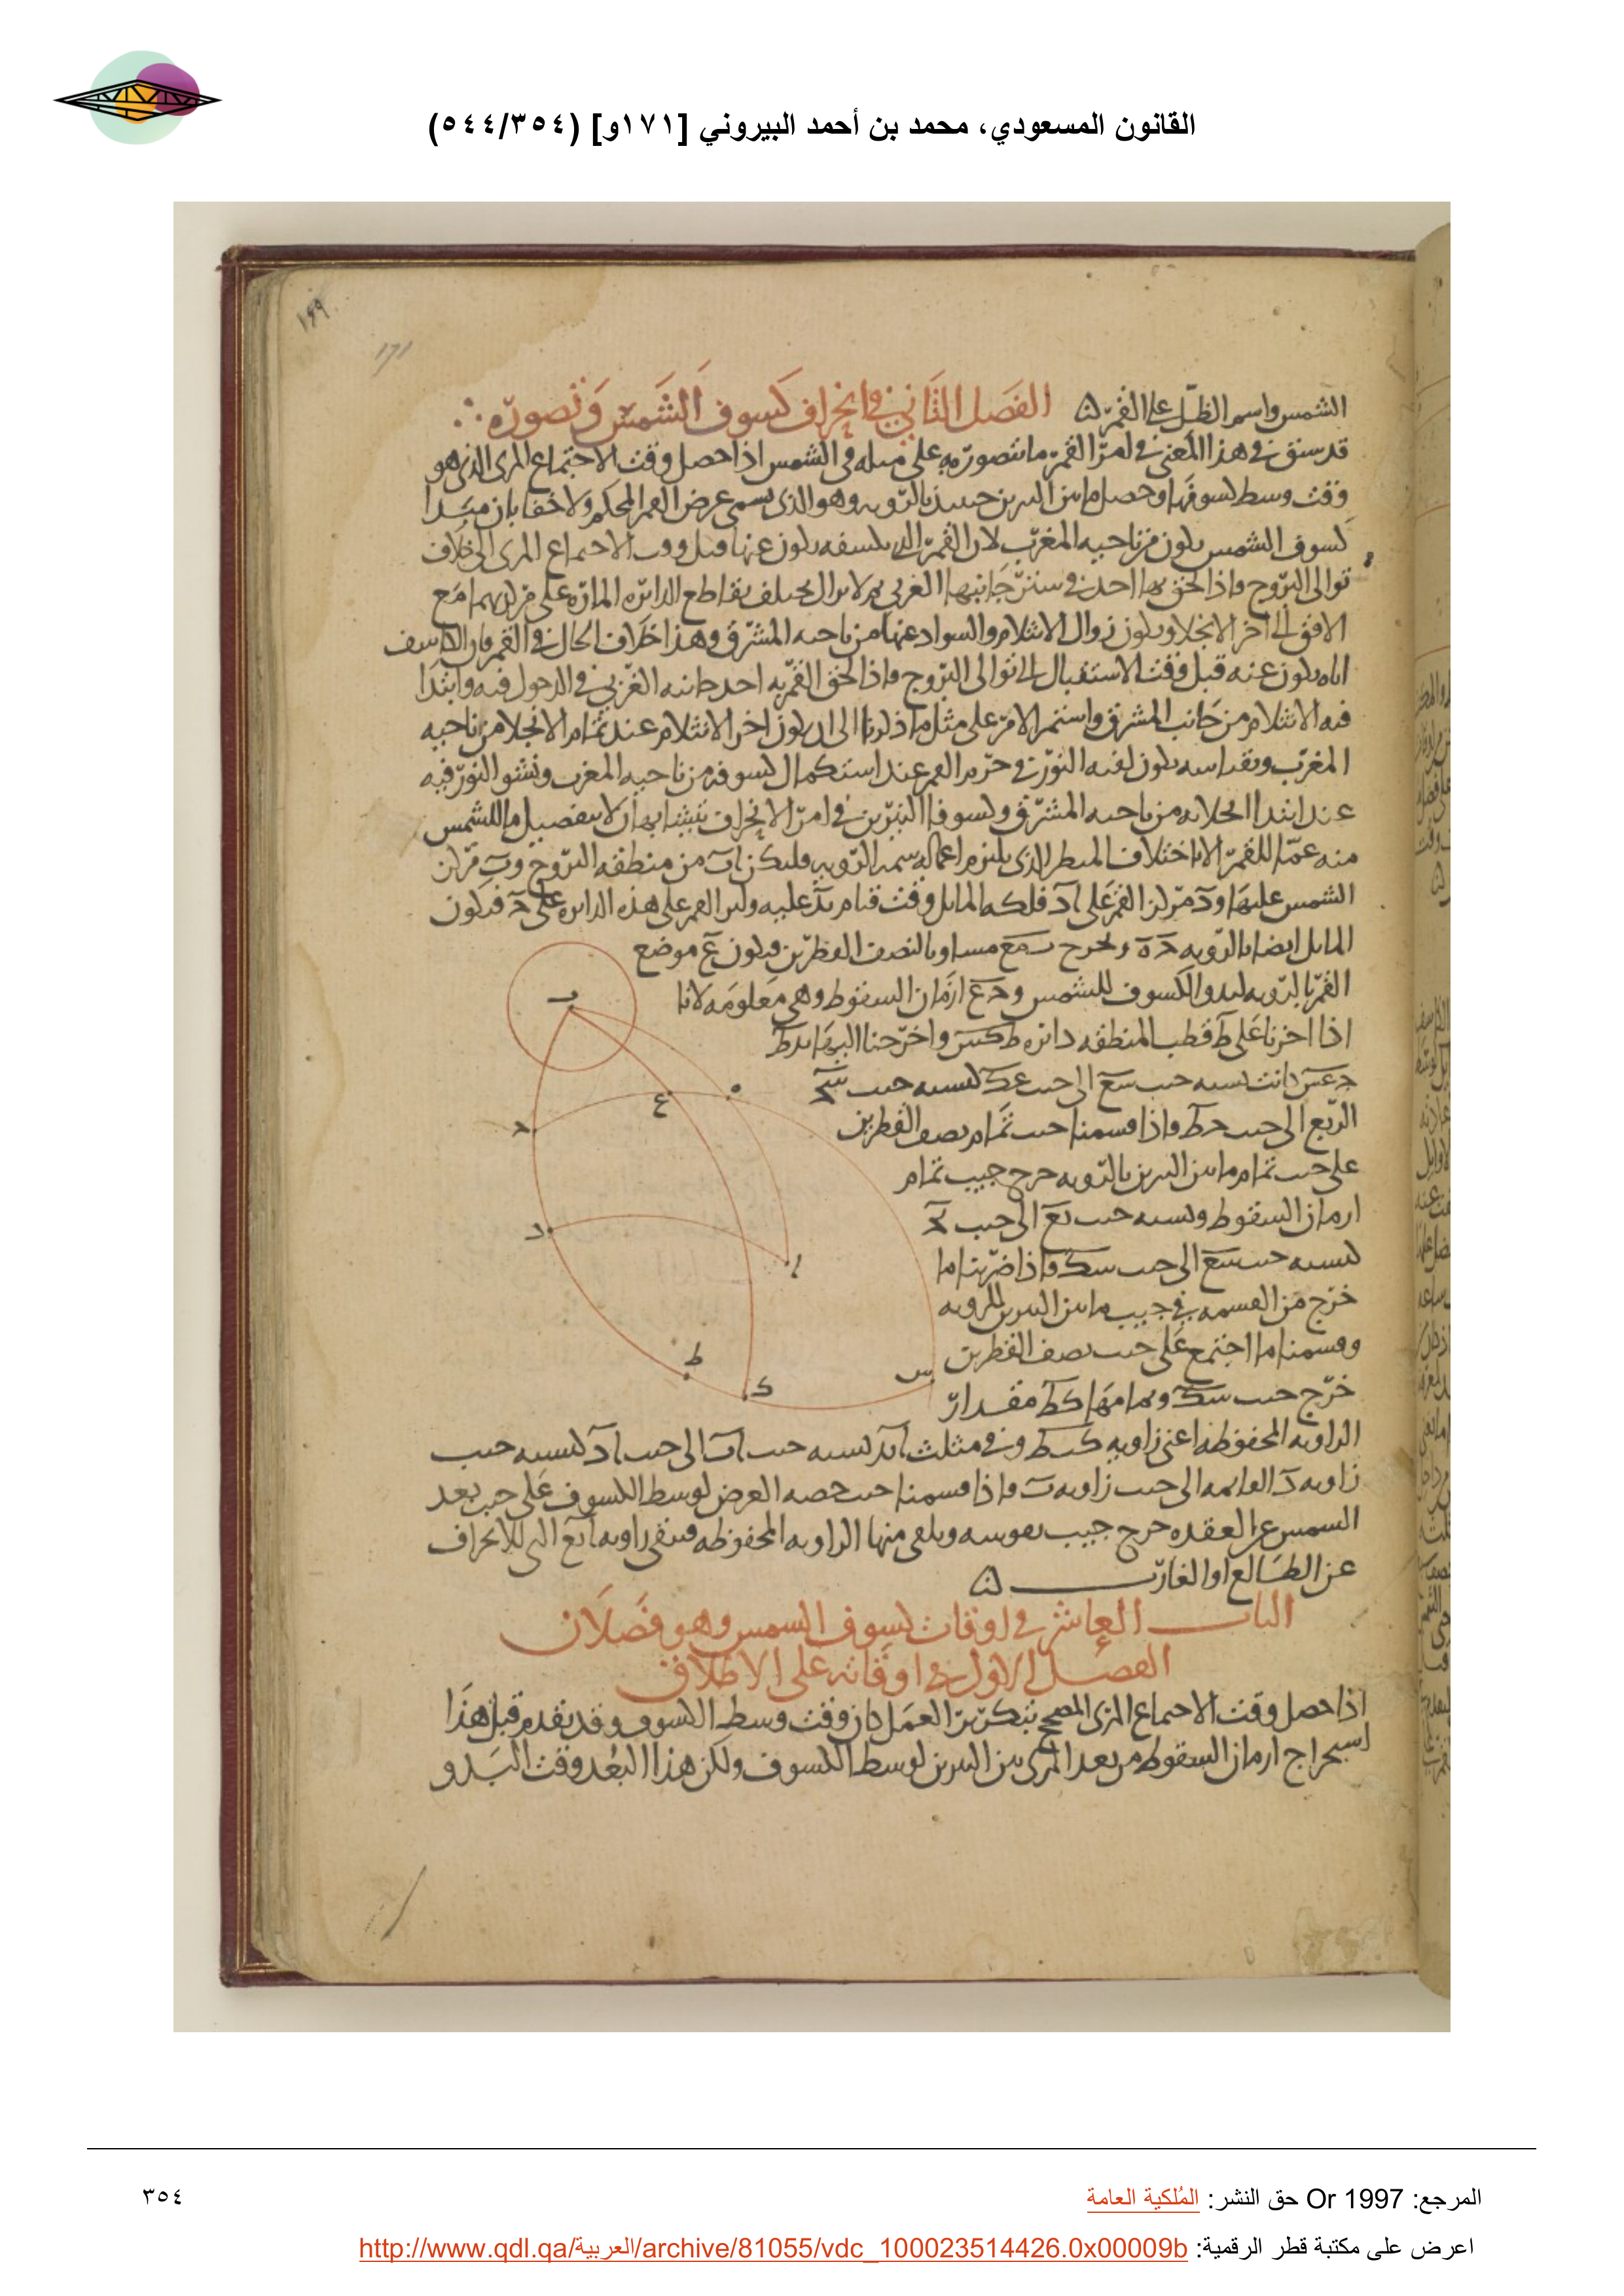 القانون المسعودي، محمد بن أحمد البيروني [١٧١و] (٥٤٤/٣٥٤)
١٦٩
١٧١
الشمس واسم الظل على القمر الفصل الثاني في انحراف كسوف الشمس وتصوره
قد سبق في هذا المعنى في امر القمر ما يتصور به على مثله في الشمس اذا حصل وقت الاجتماع المرى الذي هو
وقت وسط كسوفها وحصل ما بين النيرين حينئذ بالرويه وهو الذي يسمى عرض القمر المحكم ولا خفا بان مبدا
كسوف الشمس يكون من ناحيه المغرب لان القمر الذي يكسفه يكون عنها قبل وقت الاجتماع المرى الى خلاف
توالى البروج واذا لحق بها اخذ في ستر جانبها الغربي ثم لا يزال يختلف تقاطع الدائره الماره على مركزيهما مع
الافق الى اخر الانجلا ويكون زوال الانثلام والسواد عنها من ناحيه المشرق وهذا خلاف الحال في القمر فان الكاسف
اياه يكون عنه قبل وقت الاستقبال الى توالى البروج واذا لحق القمر به اخذ جانبه في الدخول فيه وابتدا
فيه الانثلام من جانب المشرق واستمر الامر على مثل ما ذكرنا الى ان يكون اخر الانثلام عند تمام الانجلا من ناحيه
المغرب يكون النور في جرم القمر عند استكمال كسوفه من ناحيه المغرب ونشو النور فيه
عند ابتدا انجلائه من ناحيه المشرق وكسوفا النيرين في امر الانحراف يتشابهان لا ينفصل ما للشمس
منه عما للقمر الا باختلاف المنظر الذي يلزم اعماله سمه الرويه فليكن اب من منطقه البروج وب مركز
الشمس عليها ود مركز القمر على اد فلكه المايل وقت قيام بد عليه وليرا القمر على هذه الدائره على ح فيكون
المايل ايضا بالرويه ح ه ونخرج ب ع مساويا لنصف القطرين فيكون ع موضع
القمر بالرويه لبدو الكسوف للشمس و ح ع ازمان السقوط وهي معلومه لانا
اذا ادرنا على قطب المنطقه دائره ط ك س واخرجنا اليها ب د ط
ح ع س كانت نسبه جيب س ع الى جيب ع ك كنسبه جيب س ح
الربع الى جيب ح ط فاذا قسمنا جيب تمام نصف القطرين
على جيب تمام ما بين النيرين بالرويه خرج جيب تمام
ازمان السقوط ونسبه جيب ب ع الى جيب ب ح
كنسبه جيب س ع الى جيب س ك فاذا ضربنا ما
خرج من القسمه في جيب ما بين النيرين للرويه
وقسمنا ما اجتمع على جيب نصف القطرين
خرج جيب س ك وتمامها ك ط مقدار
الزاويه المحفوظه اعني زاويه ك ب ط وفي مثلث ا ب د نسبه جيب اب الى جيب اد كنسبه جيب
زاويه د القايمه الى جيب زاويه ب فاذا قسمنا جيب حصه العرض لوسط الكسوف على جيب بعد
الشمس عن العقده خرج جيب نقوسه ونلقى منها الزاويه المحفوظه فتبقى زاويه ا ب ع التي للانحراف
عن الطالع او الغارب
الباب العاشر في اوقات كسوف الشمس وهو فصلان
الفصل الاول في اوقاته على الاطلاق
اذا حصل وقت الاجتماع المرى المصحح بتكرير العمل كان وقت وسط الكسوف وقد تقدم قبل هذا
استخراج ازمان السقوط من بعد المرى بين النيرين لوسط الكسوف ولكن هذا البعد وقت البدو
ب
ه
ع
ح
د
ا
ط
ك
س
المرجع: Or 1997 حق النشر: المُلكية العامة
٣٥٤
اعرض على مكتبة قطر الرقمية: http://www.qdl.qa/العربية/archive/81055/vdc_100023514426.0x00009b